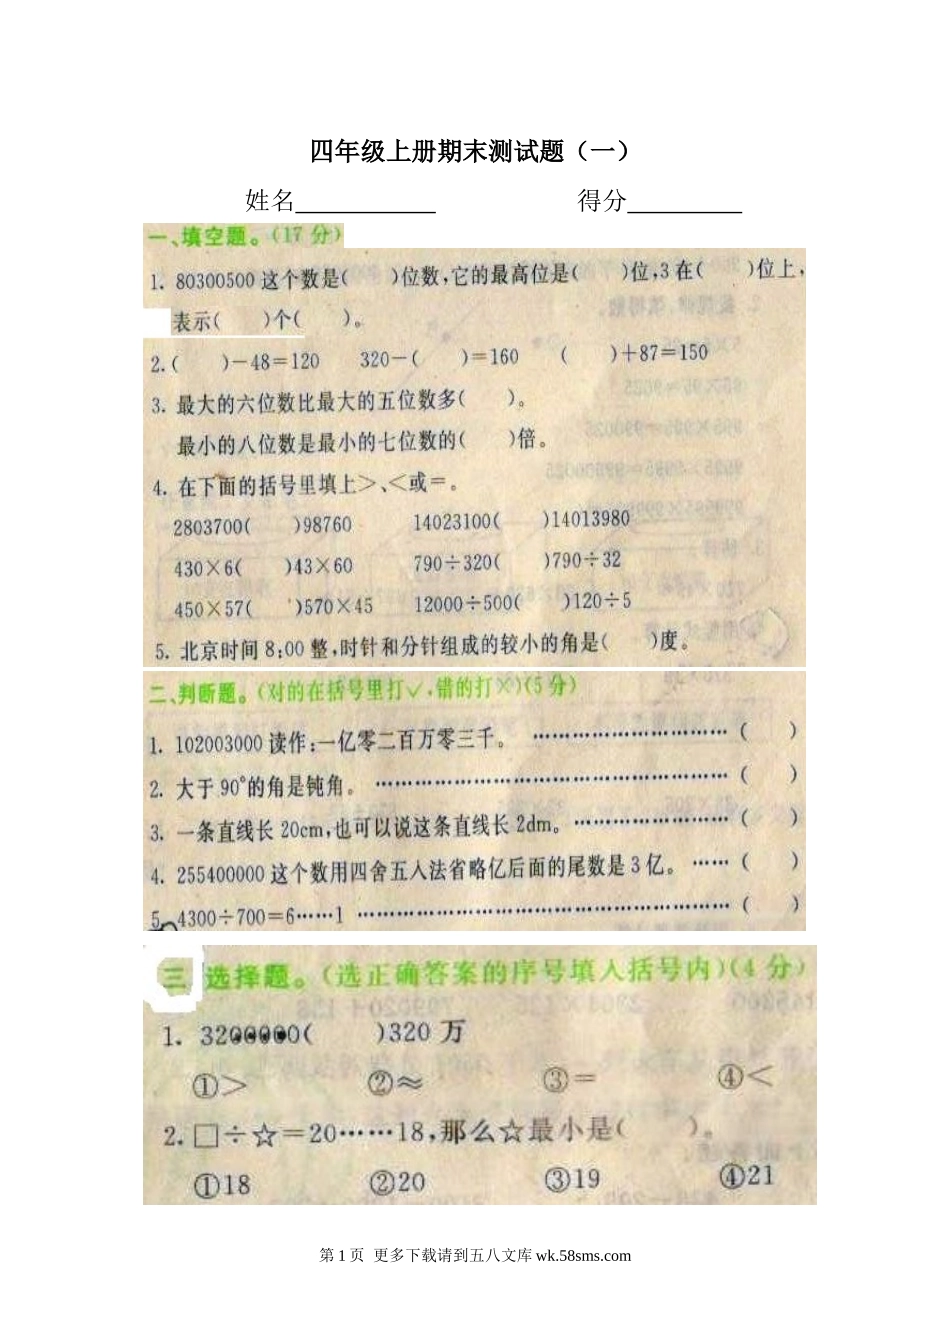 四年级上册期末测试题（一）
姓名 得分
一、填空题。(17 分)
1. 80300500 这个数是( )位数,它的最高位是( )位,3 在( )位上,
表示( )个( )。
2. ( )－48=120 320－( )=160 ( )+87=150
3. 最大的六位数比最大的五位数多( )。
最小的八位数是最小的七位数的( )倍。
4. 在下面的括号里填上>、<或=。
2803700( )98760 14023100( )14013980
430×6( )43×60 790÷320( )790÷32
450×57( )570×45 12000÷500( )120÷5
5. 北京时间 8:00 整,时针和分针组成的较小的角是( )度。
二、判断题。(对的在括号里打√,错的打×)(5 分)
1. 102003000 读作:一亿零二百万零三千。 ………………………… ( )
2. 大于 90°的角是钝角。 ……………………………………………… ( )
3. 一条直线长 20cm,也可以说这条直线长 2dm。 …………………… ( )
4. 255400000 这个数用四舍五入法省略亿后面的尾数是 3 亿。 …… ( )
5. 4300÷700=6……1 ………………………………………………… ( )
三 选择题。(选正确答案的序号填入括号内)(4 分)
1. 3200000( )320 万
①> ②≈ ③= ④<
2. □÷☆=20……18,那么☆最小是( )。
①18 ②20 ③19 ④21
第 1 页 更多下载请到五八文库 wk.58sms.com